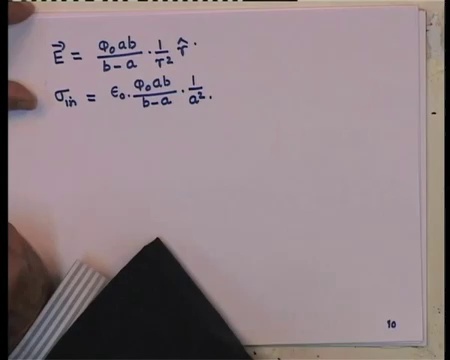 E⃗ = φ₀ab/(b-a) · 1/r² r̂.
σin = ε₀. φ₀ab/(b-a) · 1/a².
10